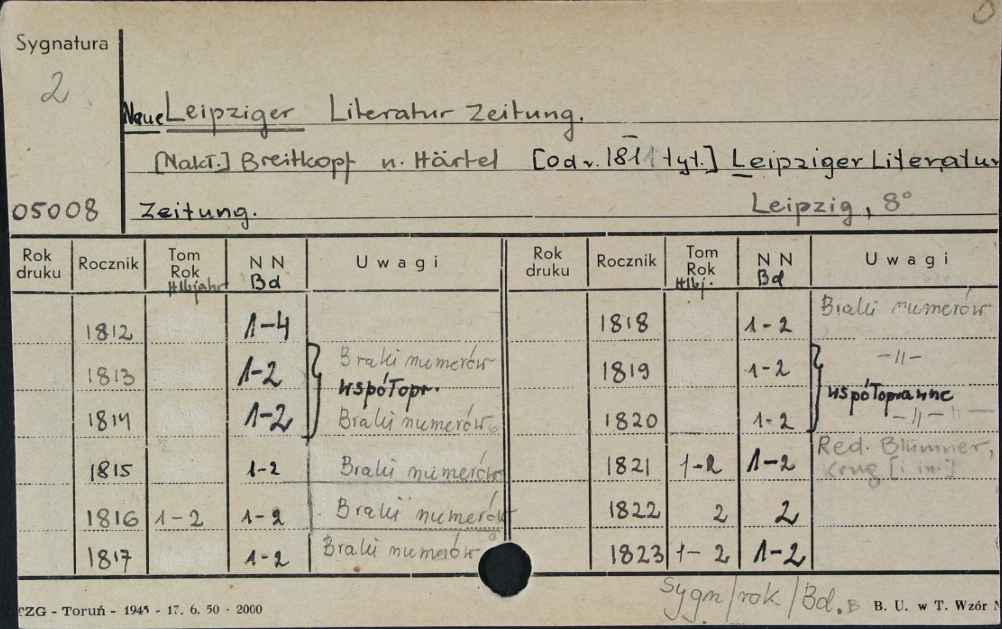 Sygnatura
2
Neue Leipziger Literatur Zeitung.
[Nakł.] Breitkopf u. Härtel [od r. 1811 tyt.] Leipziger Literatur
05008 Zeitung. Leipzig, 8°
Rok druku Rocznik Tom Rok Hlbjahr NN Bd Uwagi Rok druku Rocznik Tom Rok Hlbj. NN Bd Uwagi
1812 1-4 1818 1-2 Braki numerów
1813 1-2 Braki numerów 1819 1-2 -"-
współopr. współoprawne
1814 1-2 Braki numerów 1820 1-2 -"-"-
1815 1-2 Braki numerów 1821 1-2 1-2 Red. Blümner, Krug [i in.]
1816 1-2 1-2 Braki numerów 1822 2 2
1817 1-2 Braki numerów 1823 1-2 1-2
Sygn/rok/Bd.
TZG - Toruń - 1945 - 17. 6. 50 - 2000 B. U. w T. Wzór